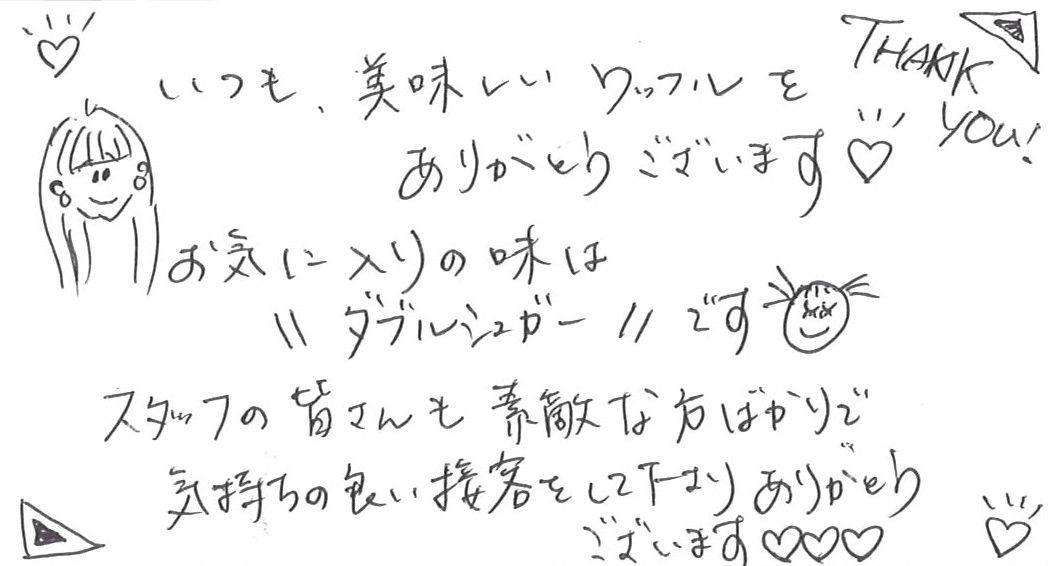 THANK
YOU!
いつも、美味しいワッフルを
ありがとうございます♡
お気に入りの味は
〃ダブルシュガー〃です
スタッフの皆さんも素敵な方ばかりで
気持ちの良い接客をして下さりありがとう
ございます♡♡♡